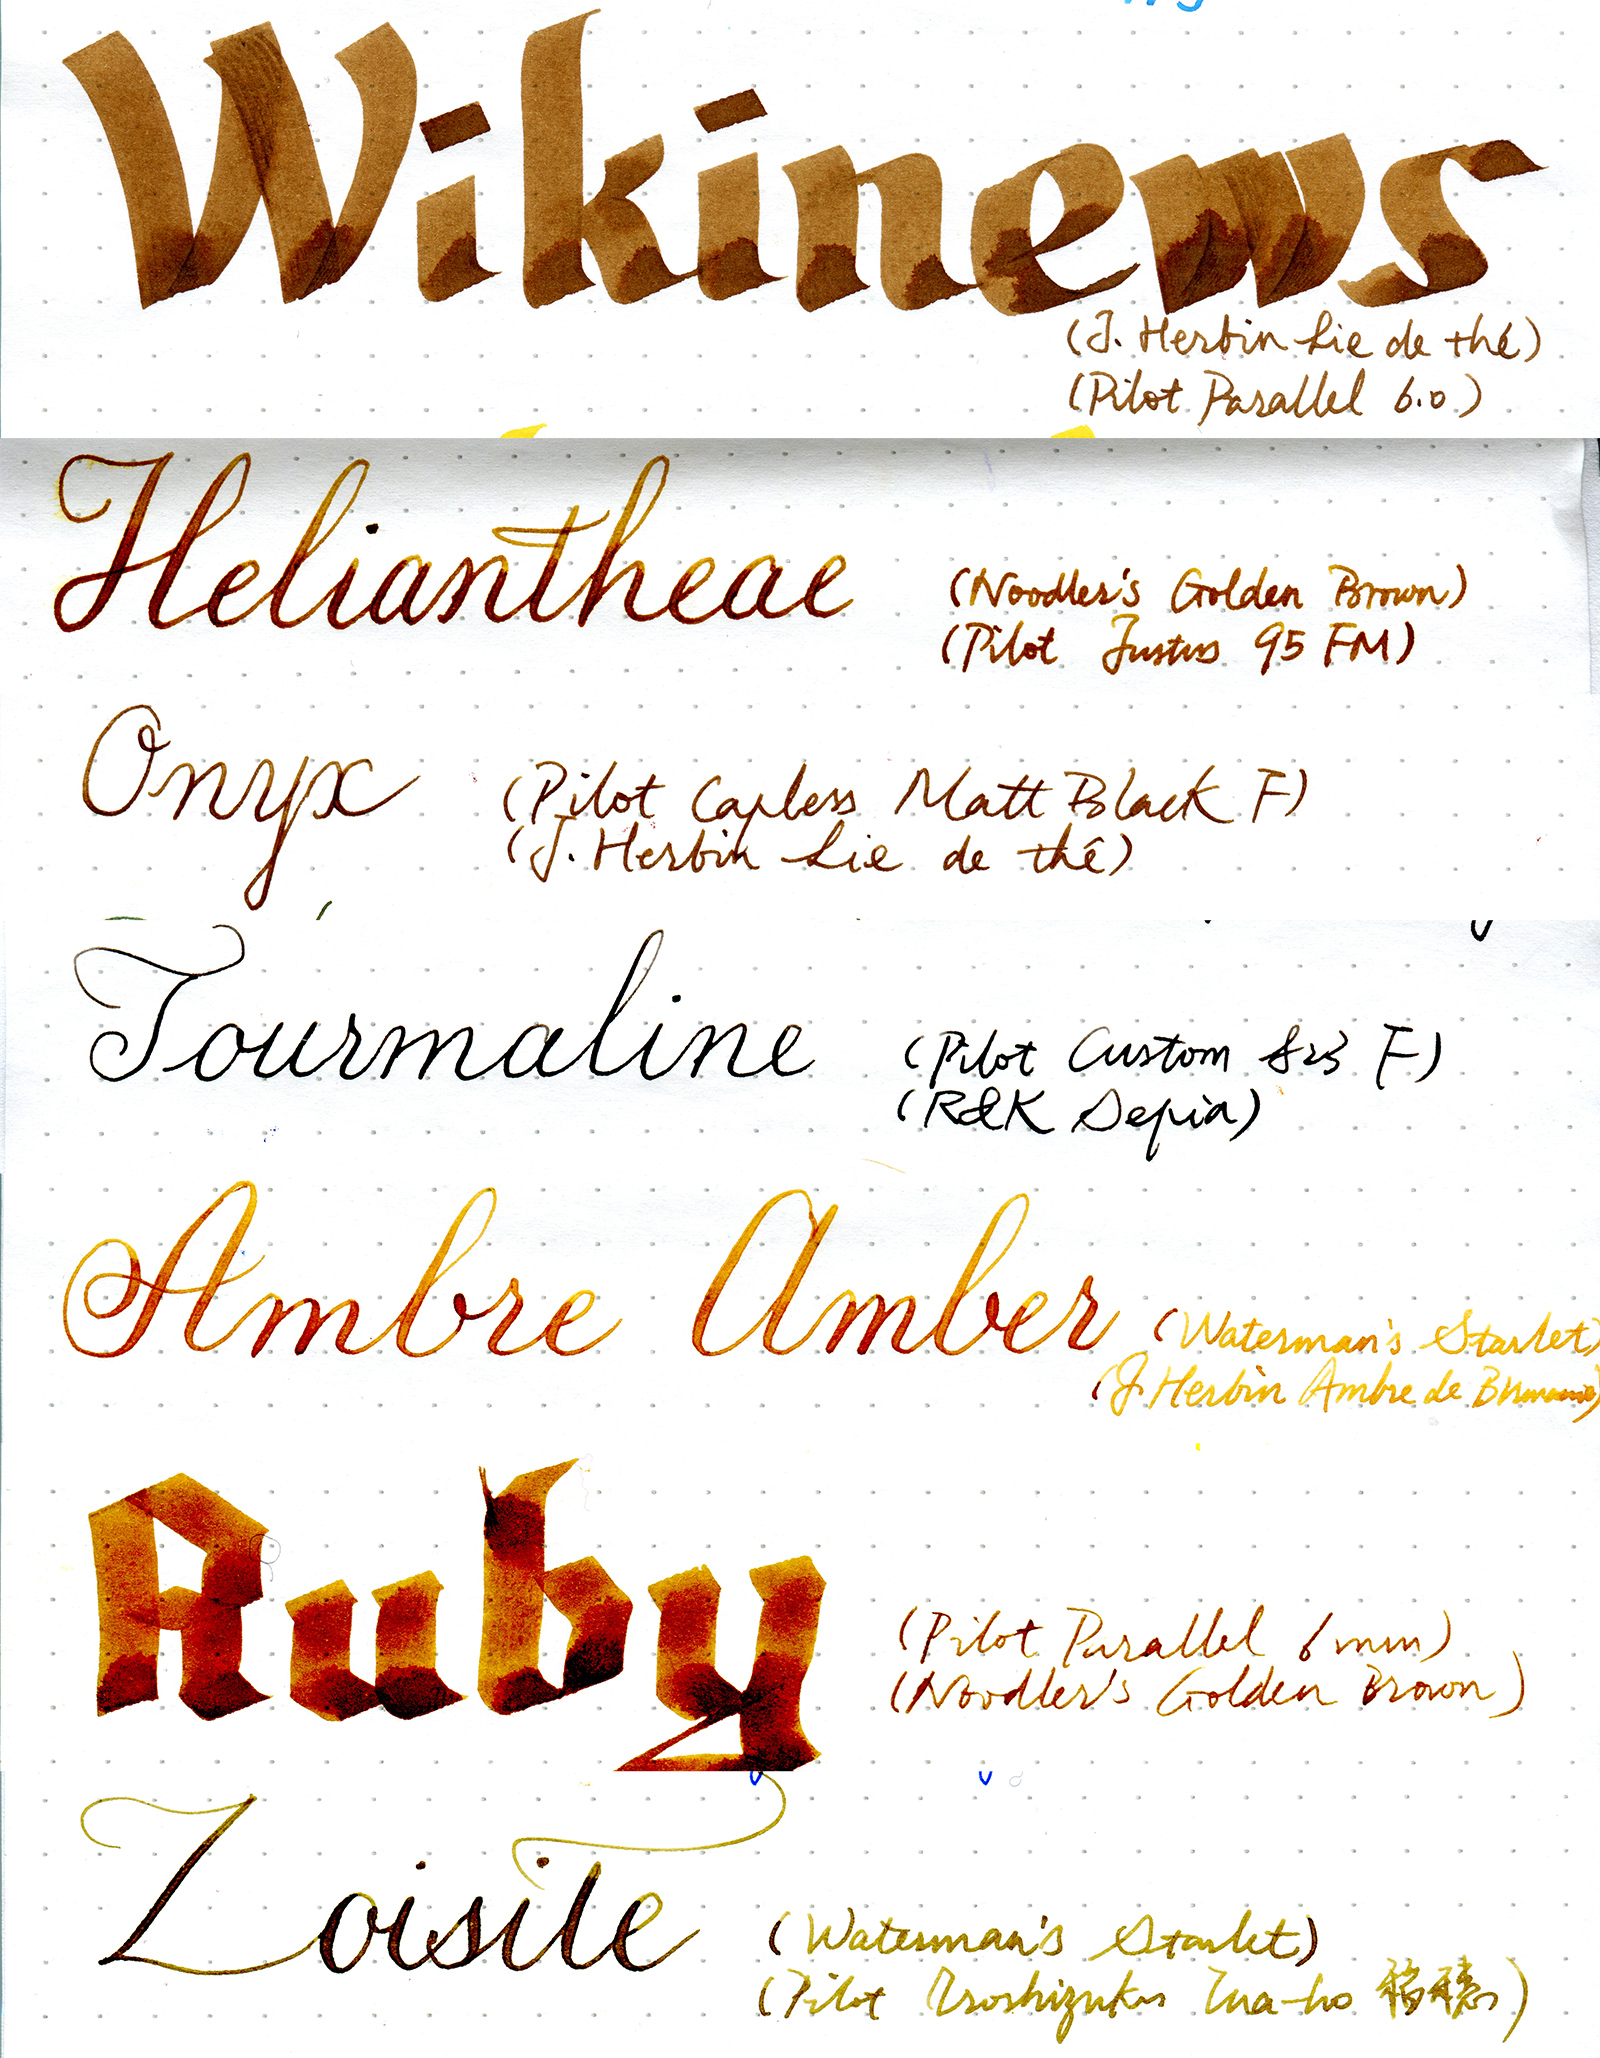 Wikinews
(J. Herbin Lie de thé)
(Pilot Parallel 6.0)
Heliantheae
(Noodler's Golden Brown)
(Pilot Justus 95 FM)
Onyx
(Pilot Capless Matt Black F)
(J. Herbin Lie de thé)
Tourmaline
(Pilot Custom 823 F)
(R&K Sepia)
Ambre Amber
(Waterman's Starlet)
(J. Herbin Ambre de Birmanie)
Ruby
(Pilot Parallel 6 mm)
(Noodler's Golden Brown)
Zoisite
(Waterman's Starlet)
(Pilot Iroshizuku Ina-ho 稲穂)